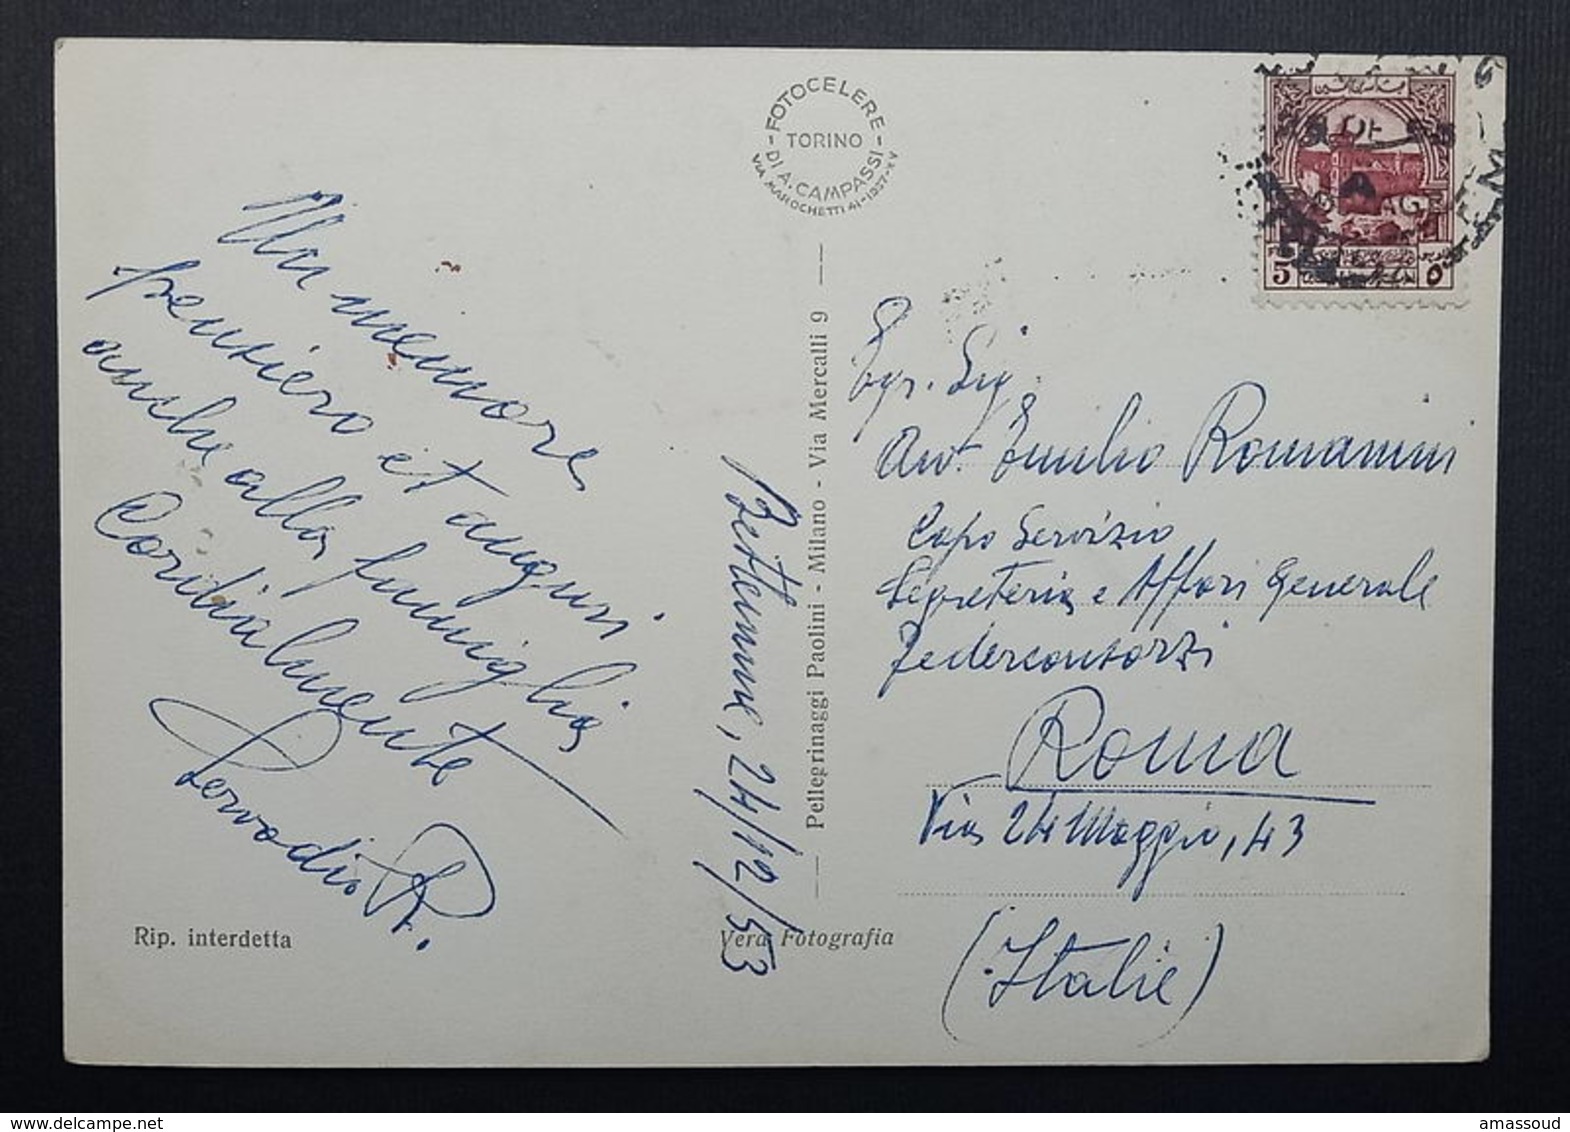 Un memore
pensiero et auguri
anche alla famiglia
Cordialmente
Servadio R.
Rip. interdetta
FOTOCELERE
TORINO
DI A. CAMPASSI
VIA MAROCHETTI 41-1937-XV
Pellegrinaggi Paolini - Milano - Via Mercalli 9
Vera Fotografia
Betlemme, 24/12/53
5
Egr. Sig
Avv. Emilio Romanini
Capo Servizio
Segreteria e Affari Generale
Federconsorzi
Roma
Via 24 Maggio, 43
(Italie)
delcampe.net
amassoud